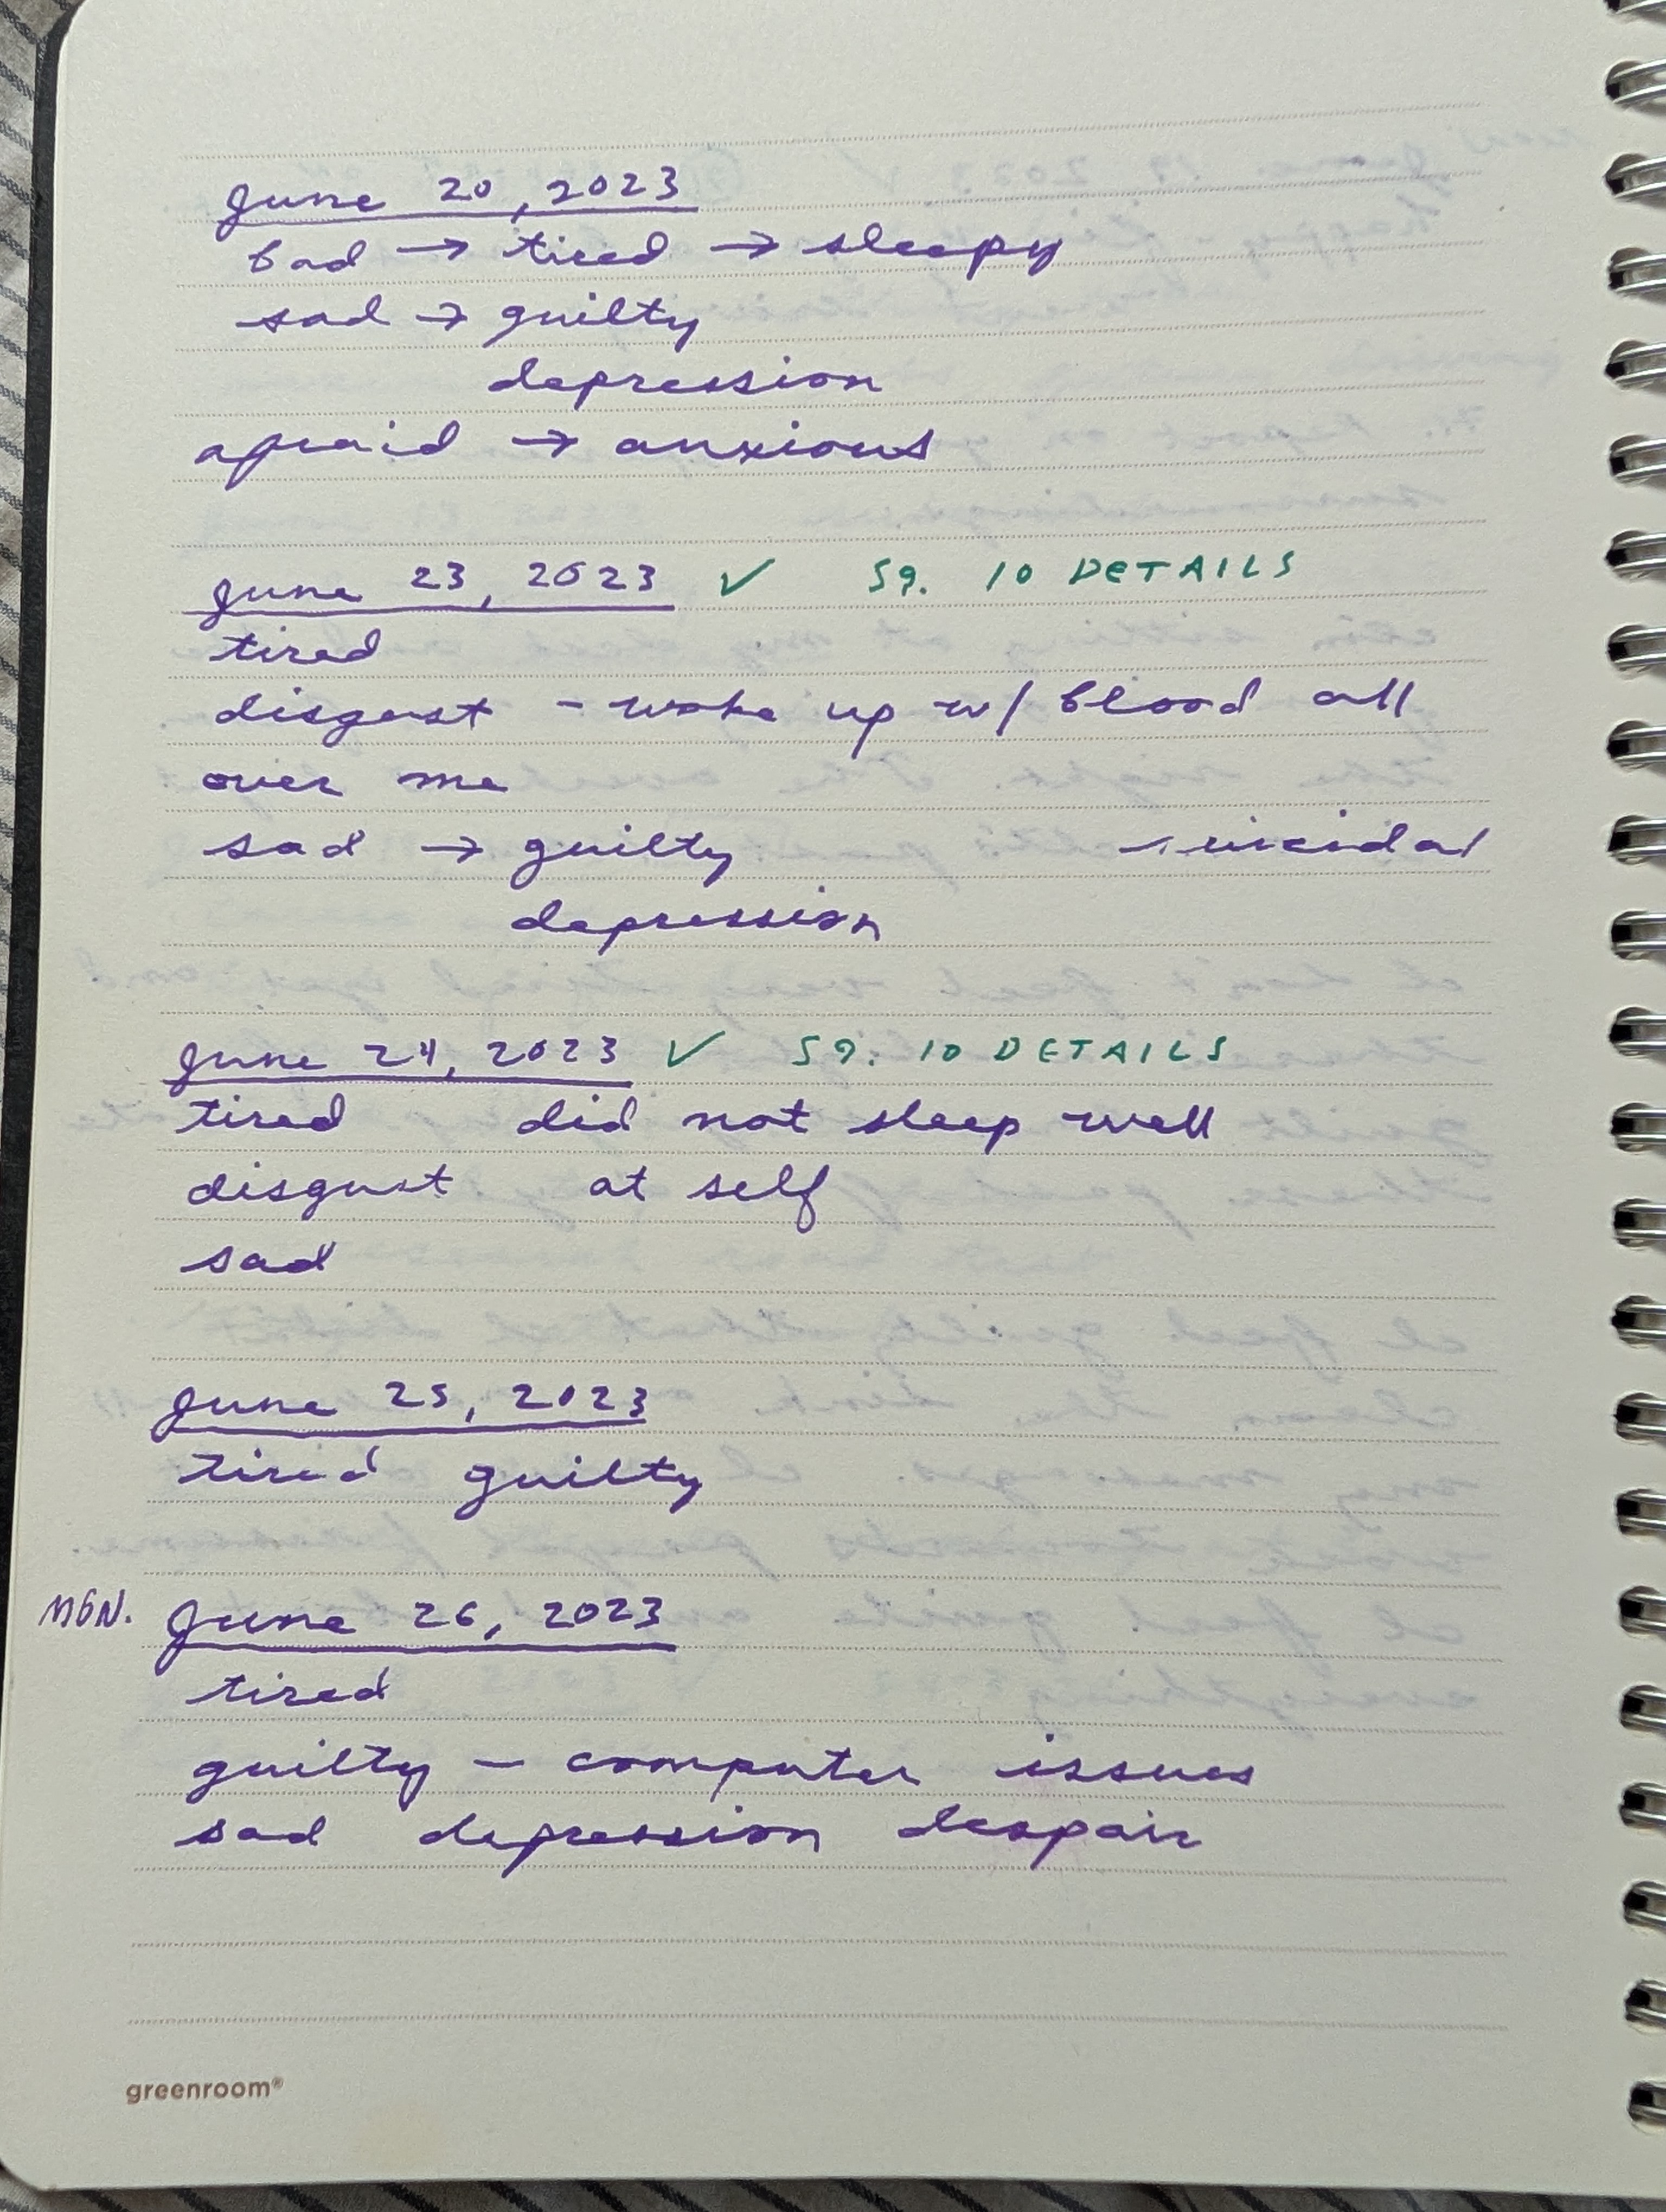 June 20, 2023
bad → tired → sleepy
sad → guilty
depression
afraid → anxious
June 23, 2023 ✓ S9. 10 DETAILS
tired
disgust - woke up w/ blood all
over me
sad → guilty suicidal
depression
June 24, 2023 ✓ S9. 10 DETAILS
tired did not sleep well
disgust at self
sad
June 25, 2023
tired guilty
MON. June 26, 2023
tired
guilty - computer issues
sad depression despair
greenroom®